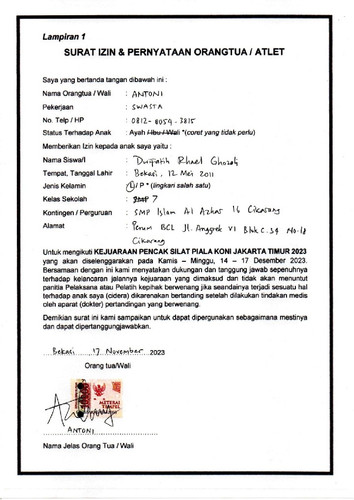 Lampiran 1
SURAT IZIN & PERNYATAAN ORANGTUA / ATLET
Saya yang bertanda tangan dibawah ini :
Nama Orangtua / Wali : ANTONI
Pekerjaan : SWASTA
No. Telp / HP : 0812-8059-3815
Status Terhadap Anak : Ayah / Ibu / Wali *(coret yang tidak perlu)
Memberikan Izin kepada anak saya yaitu :
Nama Siswa/I :
Tempat, Tanggal Lahir : Bekasi, 12 Mei 2011
Jenis Kelamin : L / P * (lingkari salah satu)
Kelas Sekolah : SMP 7
Kontingen / Perguruan : SMP Islam Al Azhar 16 Cikarang
Alamat : Perum BCL Jl. Anggrek VI Blok C.34 No.18
Cikarang
Untuk mengikuti KEJUARAAN PENCAK SILAT PIALA KONI JAKARTA TIMUR 2023
yang akan diselenggarakan pada Kamis – Minggu, 14 – 17 Desember 2023.
Bersamaan dengan ini kami menyatakan dukungan dan tanggung jawab sepenuhnya
terhadap kelancaran jalannya kejuaraan yang dimaksud dan tidak akan menuntut
panitia Pelaksana atau Pelatih kepihak berwenang jika seandainya terjadi sesuatu hal
terhadap anak saya (cidera) dikarenakan bertanding setelah dilakukan tindakan medis
oleh aparat (dokter) pertandingan yang berwenang.
Demikian surat ini kami sampaikan untuk dapat dipergunakan sebagaimana mestinya
dan dapat dipertanggungjawabkan.
Bekasi 17 November 2023
Orang tua/Wali
METERAI
TEMPEL
ANTONI
Nama Jelas Orang Tua / Wali